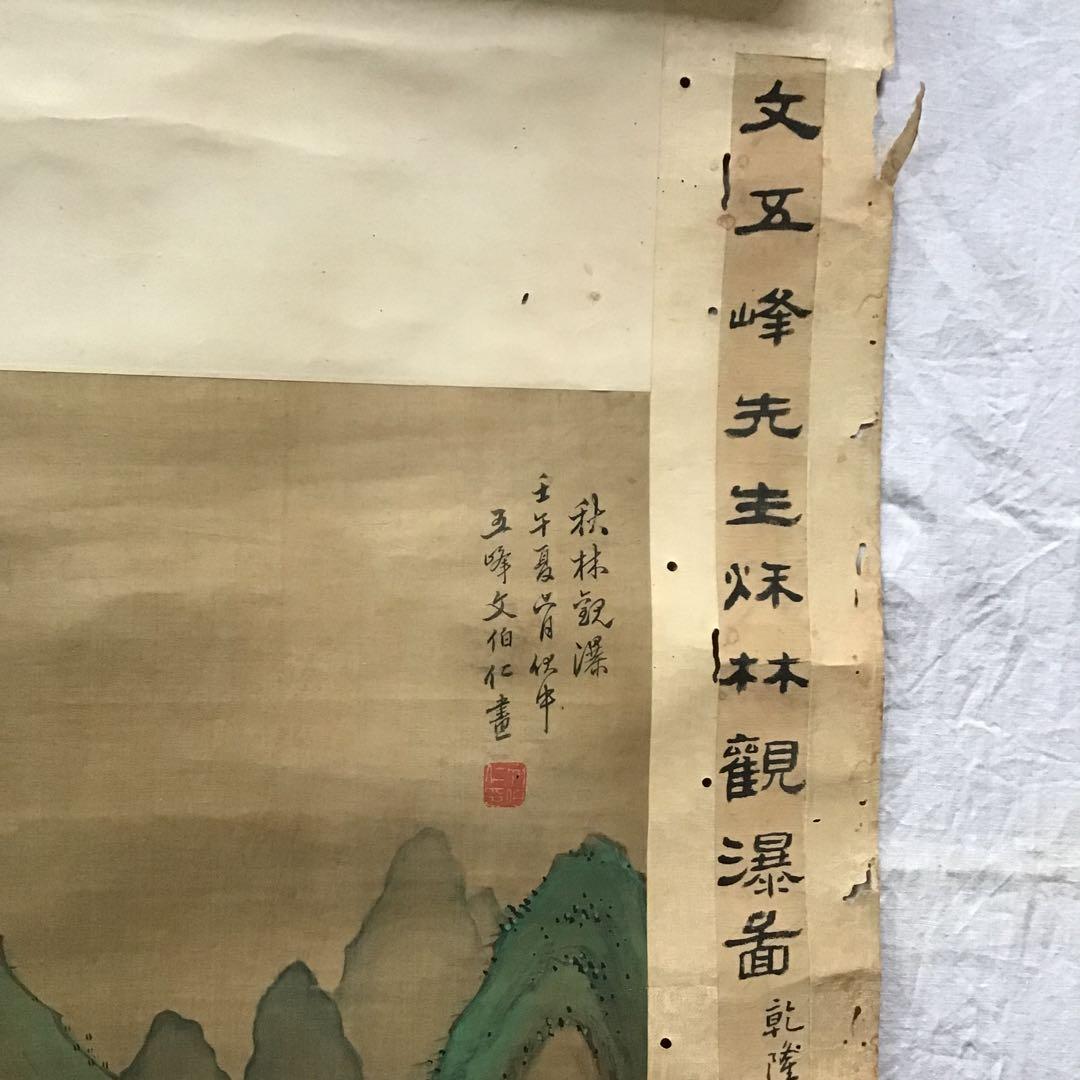 文五峰先生秌林觀瀑啚
乾隆
秋林觀瀑
壬午夏六月伏中
五峰文伯仁畫